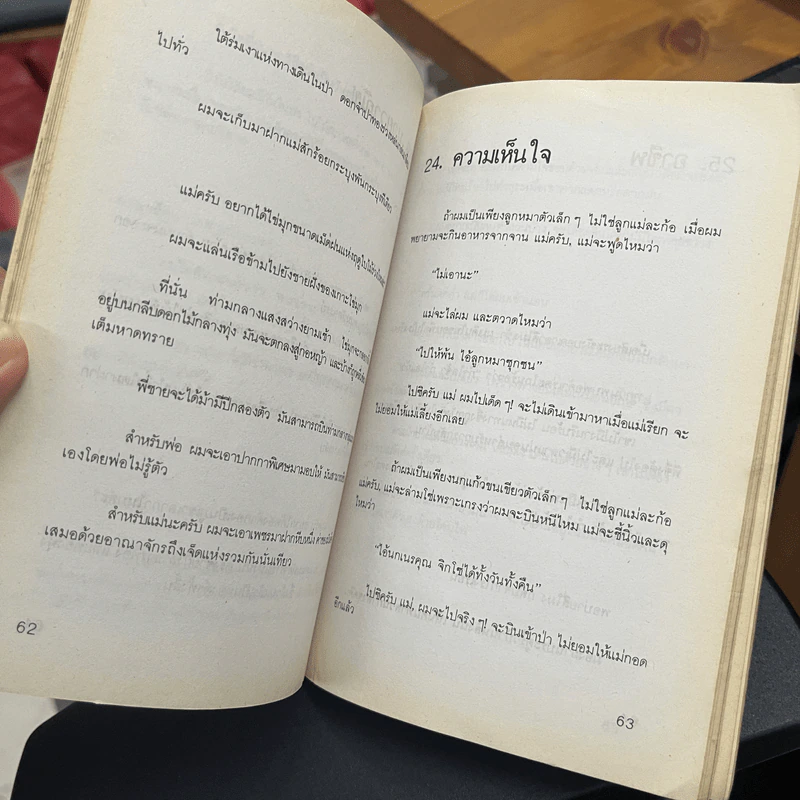 ใต้ร่มเงาแห่งทางเดินในป่า ดอกจำปาทอง
ไปทั่ว
ผมจะเก็บมาฝากแม่สักร้อยกระบุงพันกระบุงทีเดียว
แม่ครับ อยากได้ไข่มุกขนาดเม็ดฝนแห่งฤดูใบไม้ร่วงไหม
ผมจะแล่นเรือข้ามไปยังชายฝั่งของเกาะไข่มุก
ที่นั่น ท่ามกลางแสงสว่างยามเช้า ไข่มุกจะ
อยู่บนกลีบดอกไม้กลางทุ่ง มันจะตกลงสู่กอหญ้า และ
เต็มหาดทราย
พี่ชายจะได้ม้ามีปีกสองตัว มันสามารถบินท่ามกลาง
สำหรับพ่อ ผมจะเอาปากกาพิเศษมามอบให้ มัน
เองโดยพ่อไม่รู้ตัว
สำหรับแม่นะครับ ผมจะเอาเพชรมาฝากหีบหนึ่ง ค่าของมัน
เสมอด้วยอาณาจักรถึงเจ็ดแห่งรวมกันนั่นเทียว
62
24. ความเห็นใจ
ถ้าผมเป็นเพียงลูกหมาตัวเล็ก ๆ ไม่ใช่ลูกแม่ละก้อ เมื่อผม
พยายามจะกินอาหารจากจาน แม่ครับ, แม่จะพูดไหมว่า
“ไม่เอานะ”
แม่จะไล่ผม และตวาดไหมว่า
“ไปให้พ้น ไอ้ลูกหมาซุกซน”
ไปซิครับ แม่ ผมไปเด็ด ๆ! จะไม่เดินเข้ามาหาเมื่อแม่เรียก จะ
ไม่ยอมให้แม่เลี้ยงอีกเลย
ถ้าผมเป็นเพียงนกแก้วขนเขียวตัวเล็ก ๆ ไม่ใช่ลูกแม่ละก้อ
แม่ครับ, แม่จะล่ามโซ่เพราะเกรงว่าผมจะบินหนีไหม แม่จะชี้นิ้วและดุ
ไหมว่า
“ไอ้นกเนรคุณ จิกโซ่ได้ทั้งวันทั้งคืน”
ไปซิครับ แม่, ผมจะไปจริง ๆ! จะบินเข้าป่า ไม่ยอมให้แม่กอด
อีกแล้ว
63